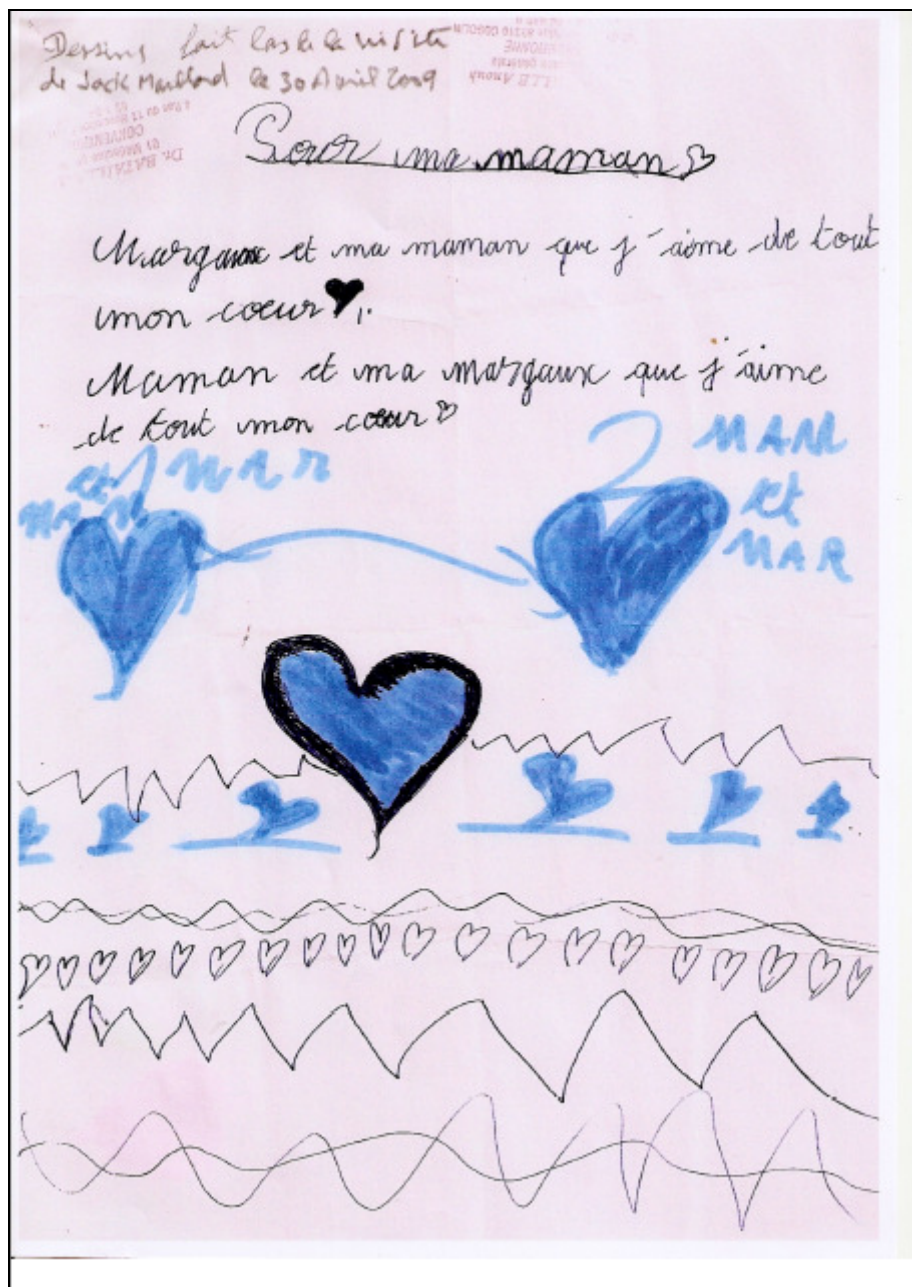 Dessins fait lors de la visite
de Jack Maillard le 30 Avril 2009
Pour ma maman
Margaux et ma maman que j'aime de tout
mon coeur
Maman et ma margaux que j'aime
de tout mon coeur
et MAR
MAM
MAM
et
MAR